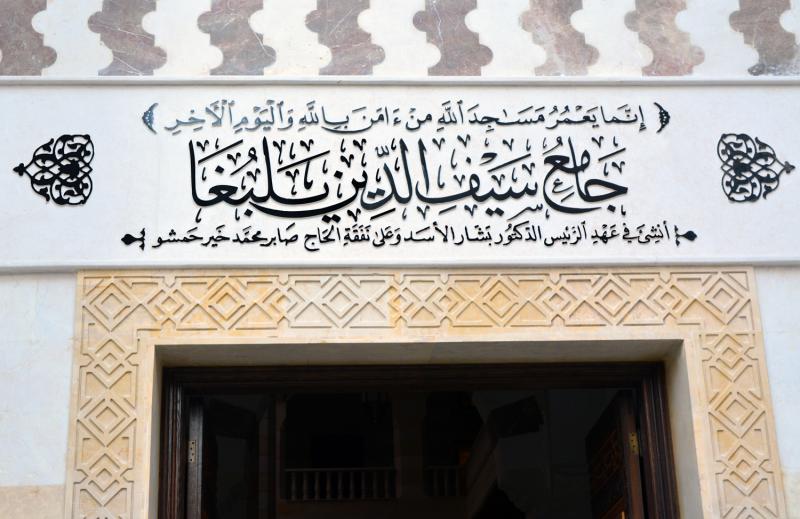 ﴿ إِنَّمَا يَعْمُرُ مَسَٰجِدَ ٱللَّهِ مَنْ ءَامَنَ بِٱللَّهِ وَٱلْيَوْمِ ٱلْأَخِرِ ﴾
جَامِعُ سَيْفِ الدِّينِ يَلبُغَا
أنشِئَ في عَهْدِ الرَّئيسِ الدّكتور بَشّار الأسَد وَعَلىٰ نَفَقَةِ الحَاج صَابر محمَّد خَير حَمشو